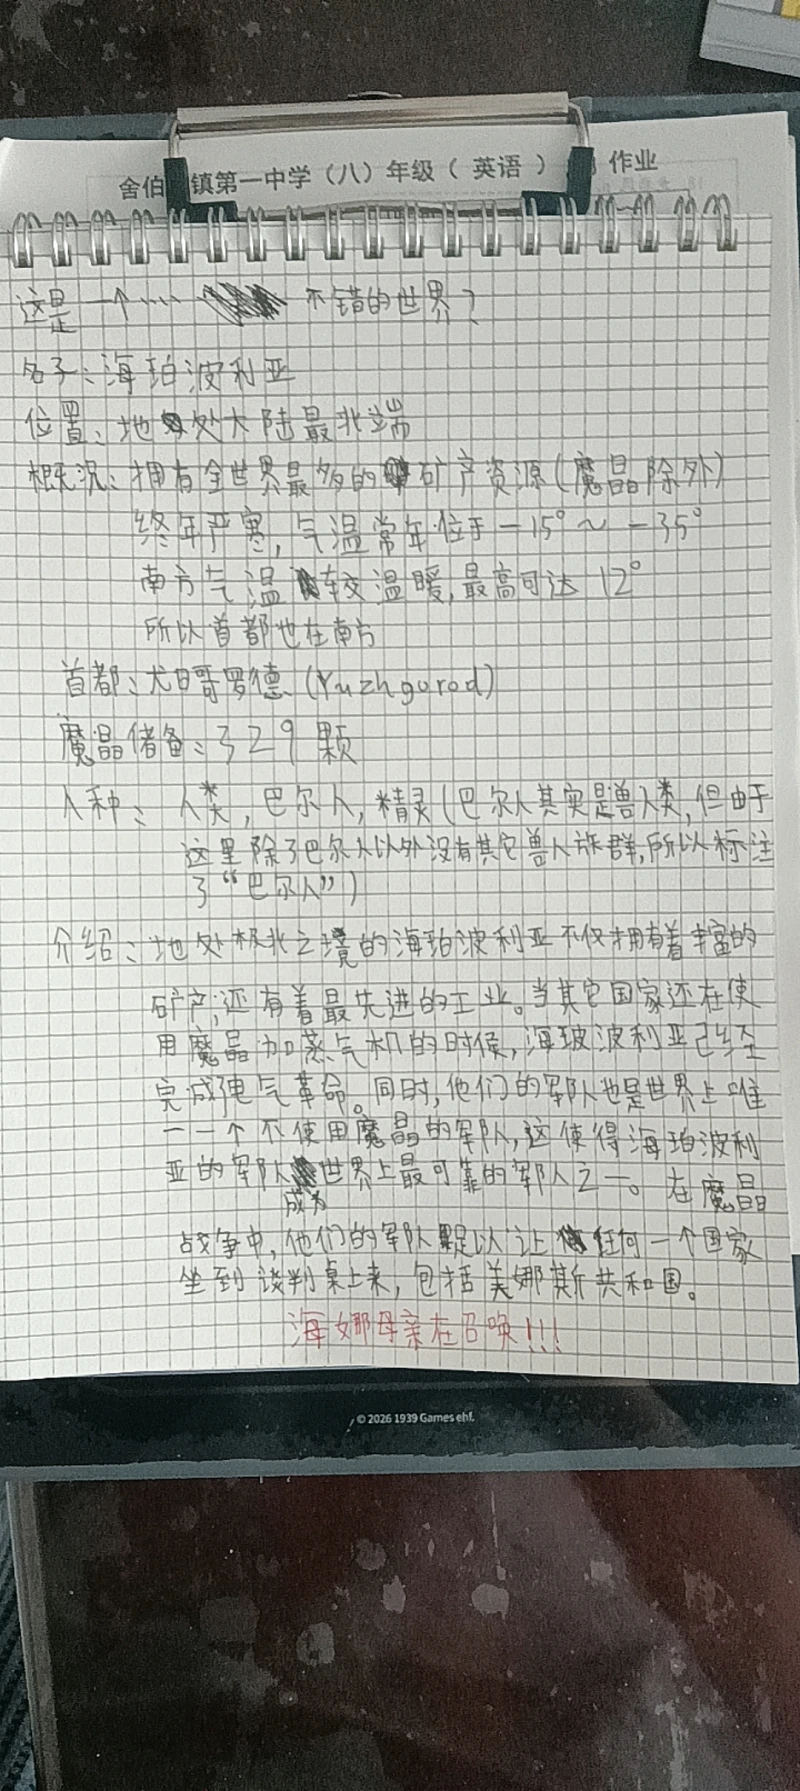 舍伯 镇第一中学（八）年级（ 英语 ） 作业
这是一个…… 不错的世界？
名子：海珀波利亚
位置：地处大陆最北端
概况：拥有全世界最多的矿产资源（魔晶除外）
终年严寒，气温常年位于－15°～－35°
南方气温较温暖，最高可达12°
所以首都也在南方
首都：尤日哥罗德（Yuzhgorod）
魔晶储备：329颗
人种：人类，巴尔人，精灵（巴尔人其实是兽人类，但由于
这里除了巴尔人以外没有其它兽人族群，所以标注
了“巴尔人”）
介绍：地处极北之境的海珀波利亚不仅拥有着丰富的
矿产，还有着最先进的工业。当其它国家还在使
用魔晶加蒸气机的时候，海玻波利亚已经
完成电气革命。同时，他们的军队也是世界上唯
一一个不使用魔晶的军队，这使得海珀波利
亚的军队成为世界上最可靠的军队之一。在魔晶
战争中，他们的军队足以让任何一个国家
坐到谈判桌上来，包括美娜斯共和国。
海娜母亲在召唤!!!
© 2026 1939 Games ehf.